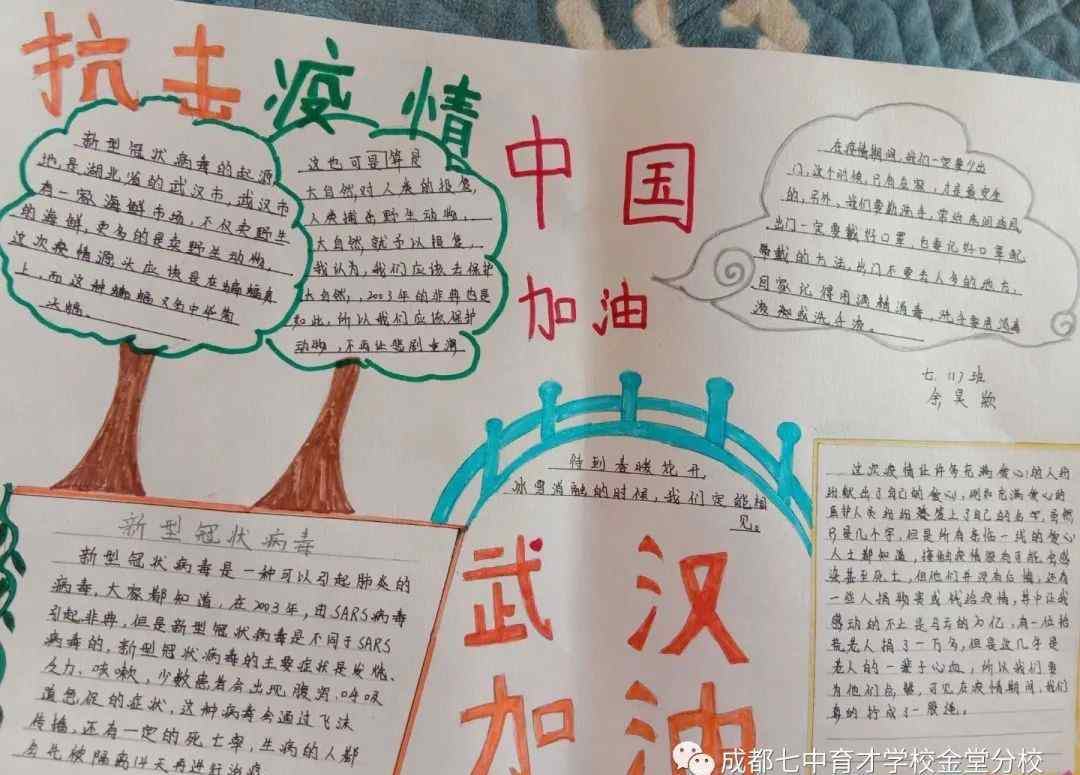 抗击疫情
新型冠状病毒的起源
地是湖北省的武汉市,武汉市
有一家海鲜市场,不仅卖野生
的海鲜,更多的是卖野生动物,
这次疫情源头应该是在蝙蝠身
上,而这种蝙蝠又名中华菊
头蝠。
这也可
大自然对人类的报复,
人类捕杀野生动物,
大自然就予以报复,
我认为,我们应该去保护
大自然,2003年的非典也是
如此,所以我们应该保护
动物,不再让悲剧重演
中国
加油
在疫情期间,我们一定要少出
门,这个时候,只有在家,才是最安全
的,另外,我们要勤洗手,常给房间通风
出门一定要戴好口罩,也要记好口罩配
带戴的方法,出门不要去人多的地方,
回家记得用酒精消毒,洗手要用消毒
液和或洗手液。
七.(1)班
余昊颖
待到春暖花开,
冰雪消融的时候,我们定能相
见。
武汉
加油
新型冠状病毒
新型冠状病毒是一种可以引起肺炎的
病毒,大家都知道,在2003年,由SARS病毒
引起非典,但是新型冠状病毒是不同于SARS
病毒的,新型冠状病毒的主要症状是发烧、
乏力、咳嗽,少数患者会出现腹泻、呼吸
道急促的症状,这种病毒会通过飞沫
传播,还有一定的死亡率,生病的人都
会先被隔离14天再进行治疗
这次疫情让许多充满爱心的人纷
纷献出了自己的爱心,
医护人员纷纷签上了自己的名字,虽然
只是几个字,但是所有去临一线的爱心
人士都知道,接触疫情极有可能会感
染甚至死亡,但他们并没有后悔,还有
一些人捐物资或钱给疫情,其中让我
感动的不止是马云的10亿,有一位拾
荒老人捐了一万多,但是这几乎是
老人的一辈子心血,所以我们要
为他们点赞,可见在疫情期间,我们
真的拧成了一股绳。
成都七中育才学校金堂分校